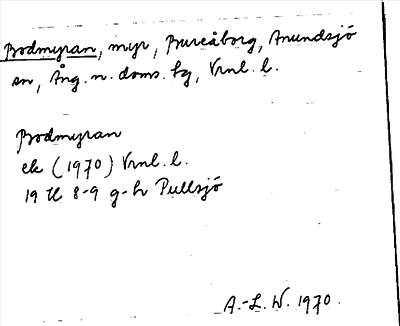 Bodmyran, myr, Bureåborg, Anundsjö
sn, Ång. n. doms. hg, Vrnl. l.
Bodmyran
ek (1970) Vrnl. l.
19 H 8-9 g-h Pullsjö
A.-L. W. 1970.